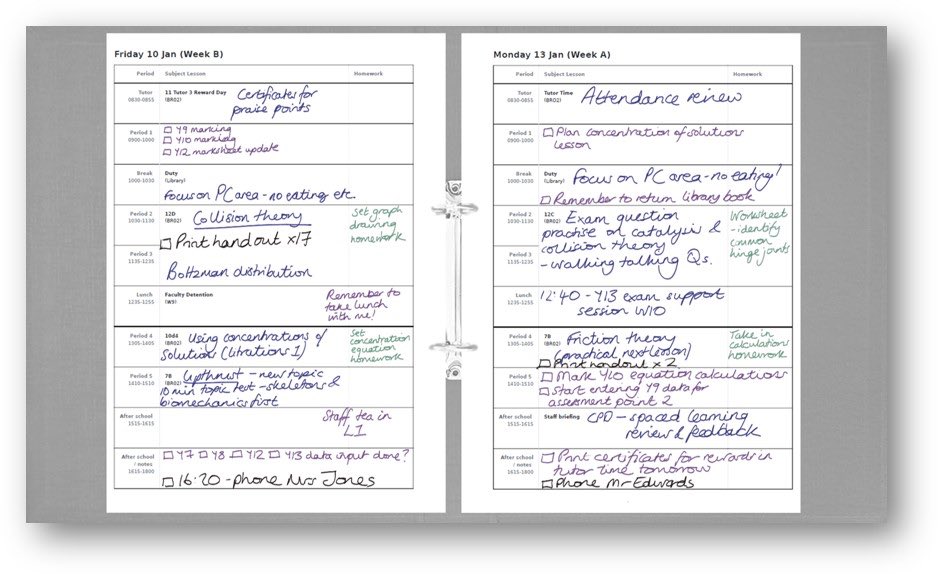 Friday 10 Jan (Week B)
Period Subject Lesson Homework
Tutor 11 Tutor 3 Reward Day Certificates for
0830-0855 (BR02) praise points
Period 1 ☐ Y9 marking
0900-1000 ☐ Y10 marking
☐ Y12 marksheet update
Break Duty
1000-1030 (Library)
Focus on PC area - no eating etc.
Period 2 12D Collision theory Set graph
1030-1130 (BR02) drawing
☐ Print handout x17 homework
Period 3
1135-1235 Boltzman distribution
Lunch Faculty Detention Remember to
1235-1255 (W9) take lunch
with me!
Period 4 10d4 Using concentrations of Set
1305-1405 (BR02) solutions (titrations I) concentration
equation
homework
Period 5 7B Upthrust - new topic
1410-1510 (BR02) 10 min topic test - skeletons &
biomechanics first
After school Staff tea in
1515-1615 L1
After school ☐ Y7 ☐ Y8 ☐ Y12 ☐ Y13 data input done?
/ notes
1615-1800 ☐ 16:20 - phone Mrs Jones
Monday 13 Jan (Week A)
Period Subject Lesson Homework
Tutor Tutor Time Attendance review
0830-0855 (BR02)
Period 1 ☐ Plan concentration of solutions
0900-1000 lesson
Break Duty Focus on PC area - no eating!
1000-1030 (Library)
☐ Remember to return library book
Period 2 12C Exam question Worksheet
1030-1130 (BR02) practise on catalysis & - identify
collision theory common
Period 3 - walking talking Qs. hinge joints
1135-1235
Lunch 12:40 - Y13 exam support
1235-1255 session W10
Period 4 7B Friction theory Take in
1305-1405 (BR02) (practical next lesson) calculations
☐ Print handout x 2 homework
Period 5 ☐ Mark Y10 equation calculations
1410-1510 ☐ Start entering Y9 data for
assessment point 2
After school Staff briefing CPD - spaced learning
1515-1615 review & feedback
After school ☐ Print certificates for rewards in
/ notes tutor time tomorrow
1615-1800 ☐ Phone Mr Edwards